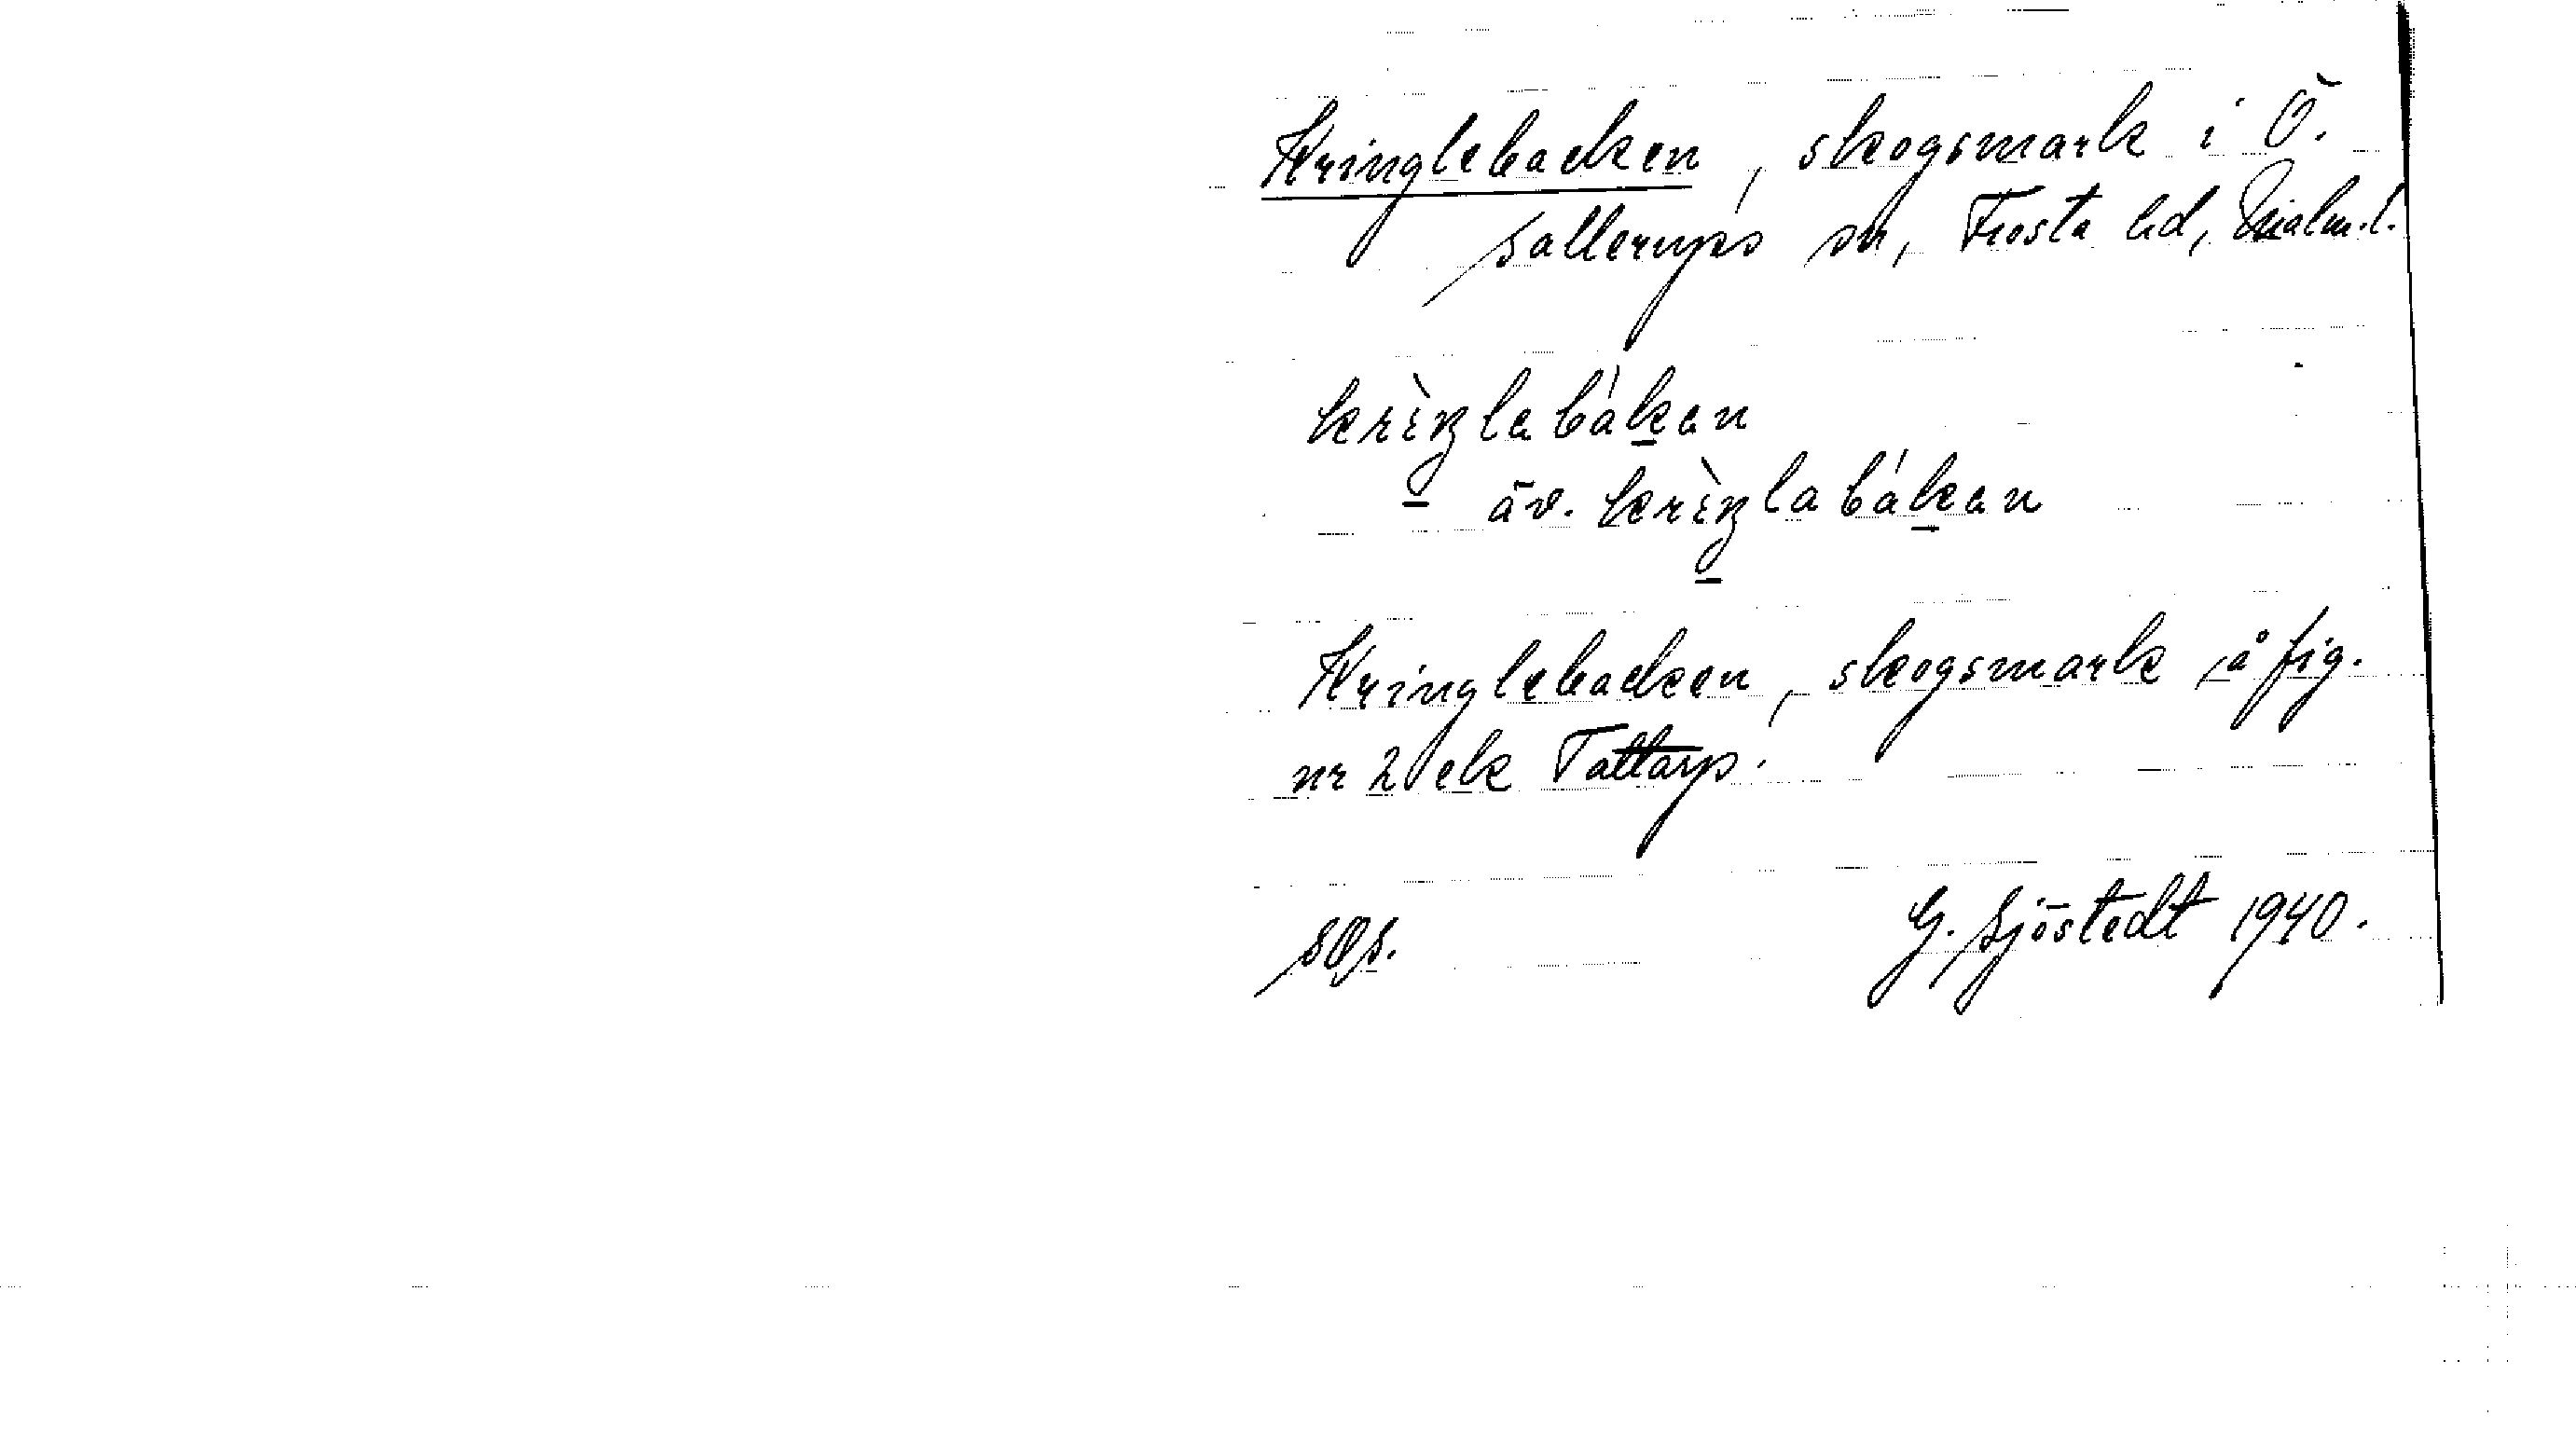 Kringlebacken, skogsmark i Ö.
Sallerups sn, Frosta hd, Malm.l.
krìŋlabákan
äv. krìŋlabákan
Kringlebacken, skogsmark på fig.
nr 2 ek Tattarp.
SOS. G. Sjöstedt 1940.